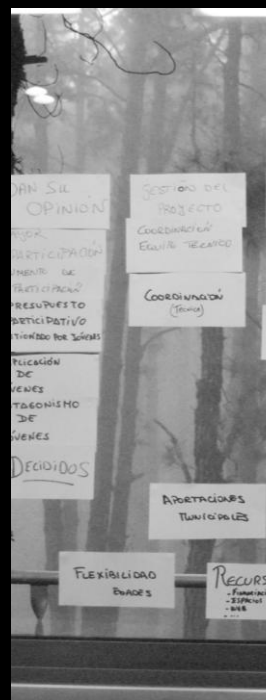 DAN SU
OPINIÓN
PARTICIPACIÓN
DE
PARTICIPACIÓN
PRESUPUESTO
PARTICIPATIVO
POR JÓVENES
PLICACIÓN
DE
VENES
TAGONISMO
DE
JÓVENES
DECIDIDOS
GESTIÓN DEL
PROYECTO
COORDINACIÓN
EQUIPO TECNICO
COORDINACIÓN
(TECNICA)
APORTACIONES
MUNICIPALES
FLEXIBILIDAD
EDADES
RECURS
- FINANCIAC
- ESPACIOS
- WEB